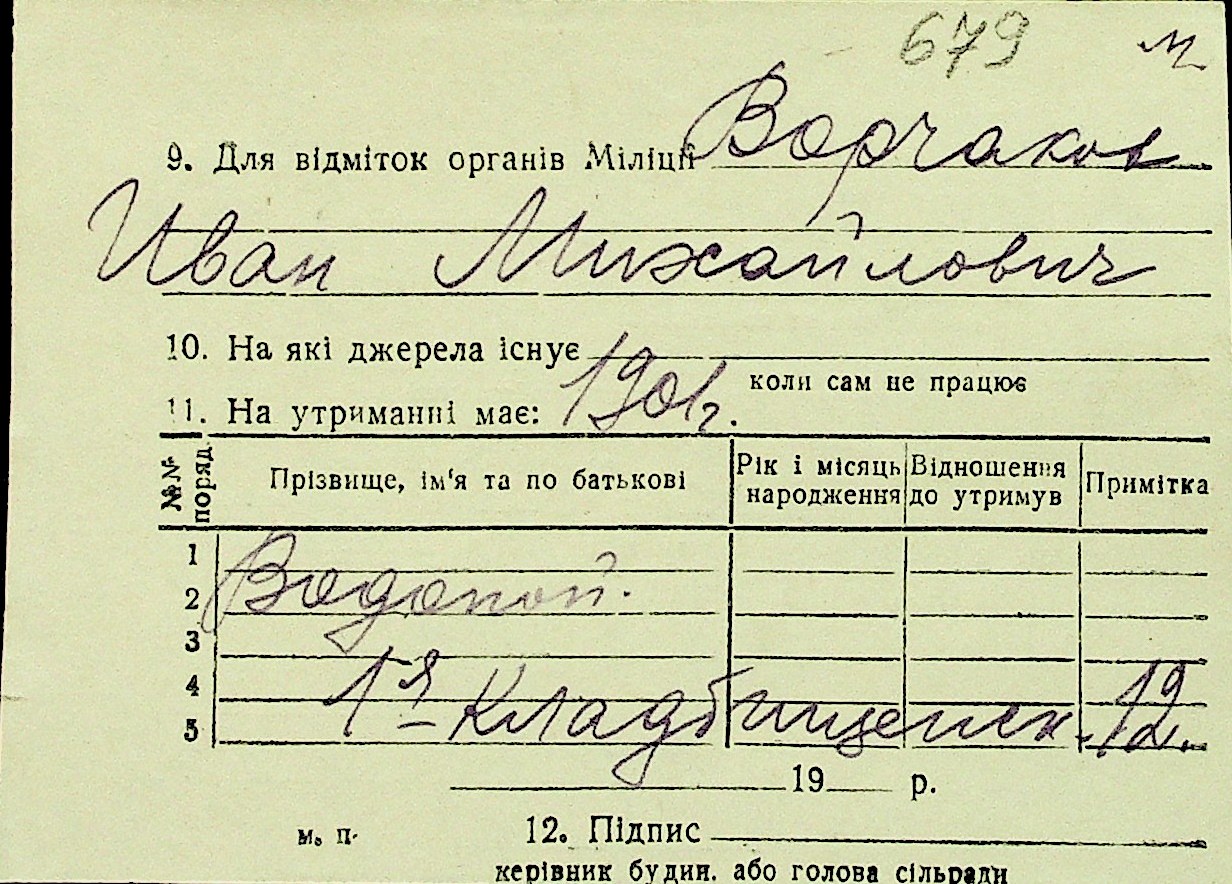 679 м
9. Для відміток органів Міліції Ворчаков
Иван Михайлович
10. На які джерела існує
коли сам не працює
11. На утриманні має: 1901г.
№№ поряд. Прізвище, ім'я та по батькові Рік і місяць народження Відношення до утримув Примітка
1
2 Водопой.
3
4
5 1я Кладбищенск. 12.
19 р.
м. п. 12. Підпис
керівник будин. або голова сільради